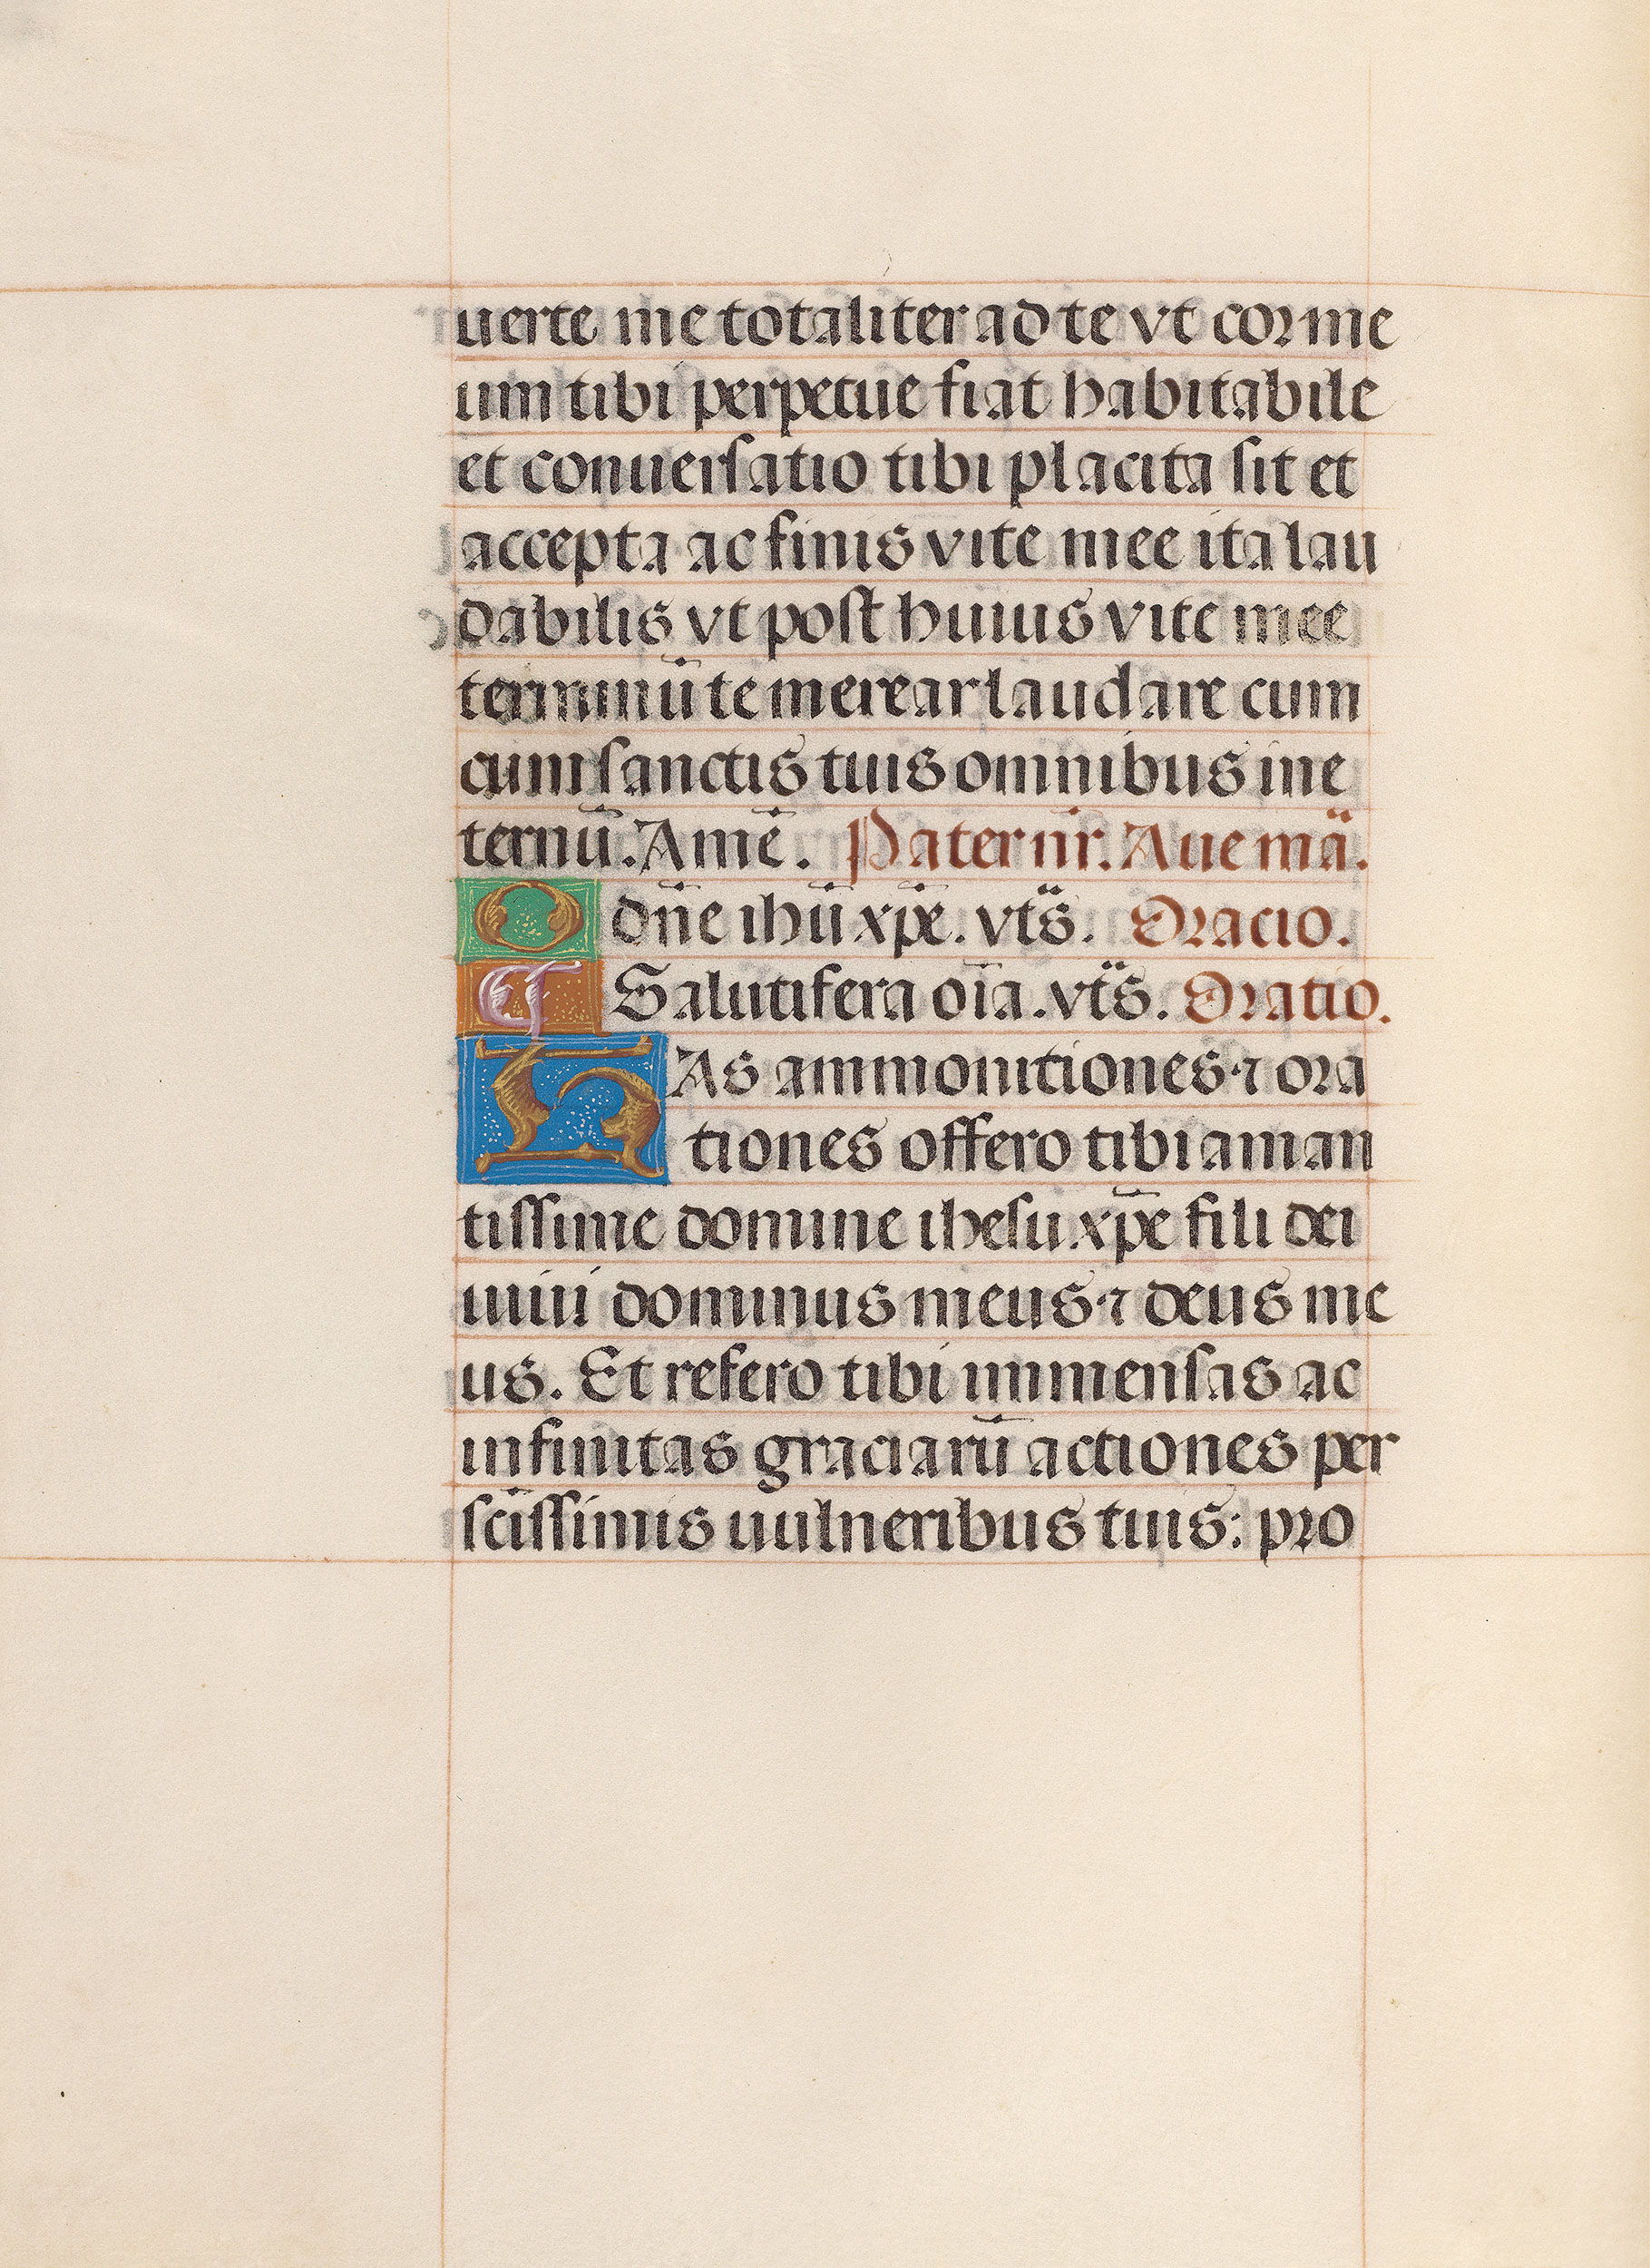 uerte me totaliter ad te vt cor me
um tibi perpetue fiat habitabile
et conuersatio tibi placita sit et
accepta ac finis vite mee ita lau
dabilis vt post huius vite mee
terminū te merear laudare cum
cum sanctis tuis omnibus in e
ternū. Amē. Pater nr̄. Aue mā.
O dn̄e ihū xp̄e. vts̄. Oracio.
T Salutifera oīa. vts̄. Oratio.
HAs ammonitiones ⁊ ora
tiones offero tibi aman
tissime domine ihesu xp̄e fili dei
uiui dominus meus ⁊ deus me
us. Et refero tibi immensas ac
infinitas graciarū actiones per
scīssimis uulneribus tuis: pro